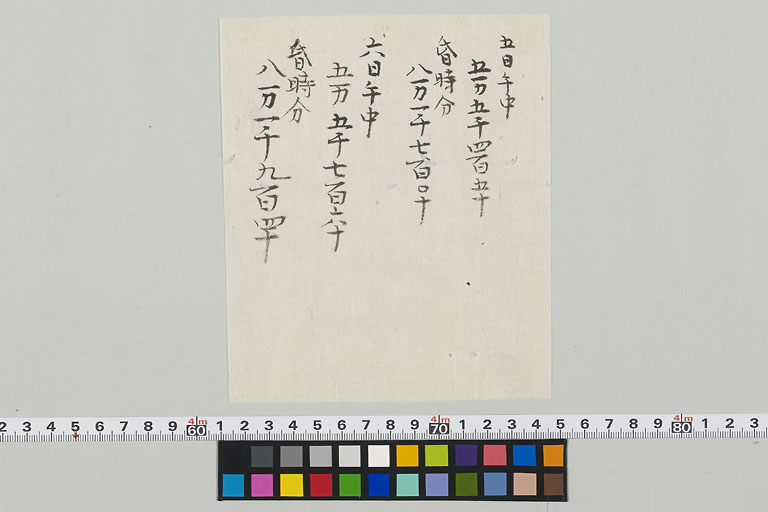 五日午中
五万五千四百五十
昏時分
八万一千七百〇十
六日午中
五万五千七百六十
昏時分
八万一千九百四十
2 3 4 5 6 7 8 9 60 1 2 3 4 5 6 7 8 9 70 1 2 3 4 5 6 7 8 9 80 1 2 3
4m 4m 4m